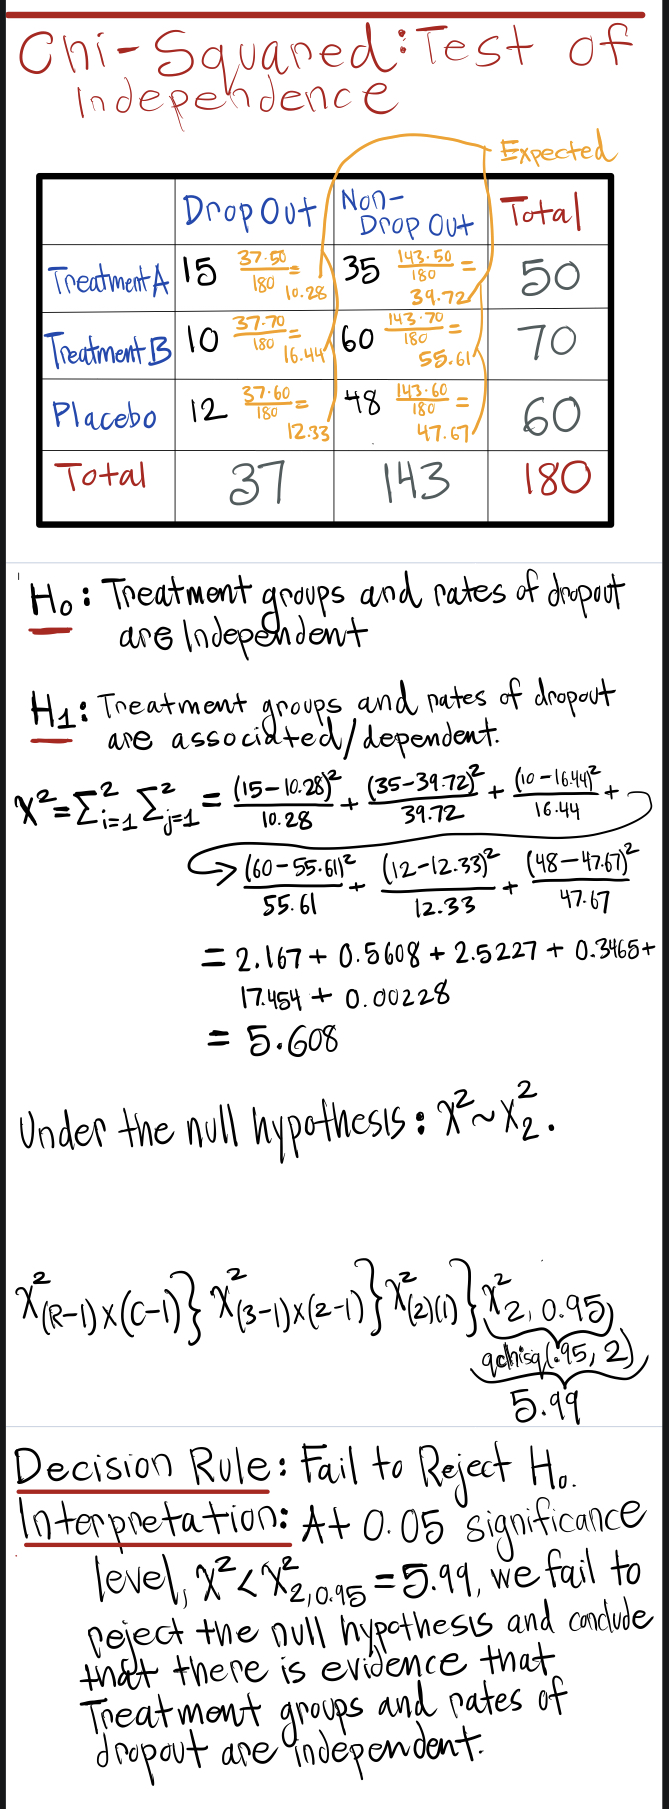 Chi-Squared: Test of
Independence
Expected
Drop Out Non-Drop Out Total
Treatment A 15 37·50/180 = 10.28 35 143·50/180 = 39.72 50
Treatment B 10 37·70/180 = 16.44 60 143·70/180 = 55.61 70
Placebo 12 37·60/180 = 12.33 48 143·60/180 = 47.67 60
Total 37 143 180
H₀: Treatment groups and rates of dropout
are Independent
H1: Treatment groups and rates of dropout
are associated/dependent.
X² = Σ²ᵢ₌₁ Σ²ⱼ₌₁ = (15-10.28)²/10.28 + (35-39.72)²/39.72 + (10-16.44)²/16.44 +
(60-55.61)²/55.61 + (12-12.33)²/12.33 + (48-47.67)²/47.67
= 2.167 + 0.5608 + 2.5227 + 0.3465 +
17.454 + 0.00228
= 5.608
Under the null hypothesis: X² ~ X²₂.
X²(R-1)x(C-1)} X²(3-1)x(2-1)} X²(2)(1)} X²2,0.95)
qchisq(.95, 2)
5.99
Decision Rule: Fail to Reject H₀.
Interpretation: At 0.05 significance
level, X² < X²2,0.95 = 5.99, we fail to
reject the null hypothesis and conclude
that there is evidence that
Treatment groups and rates of
dropout are independent.